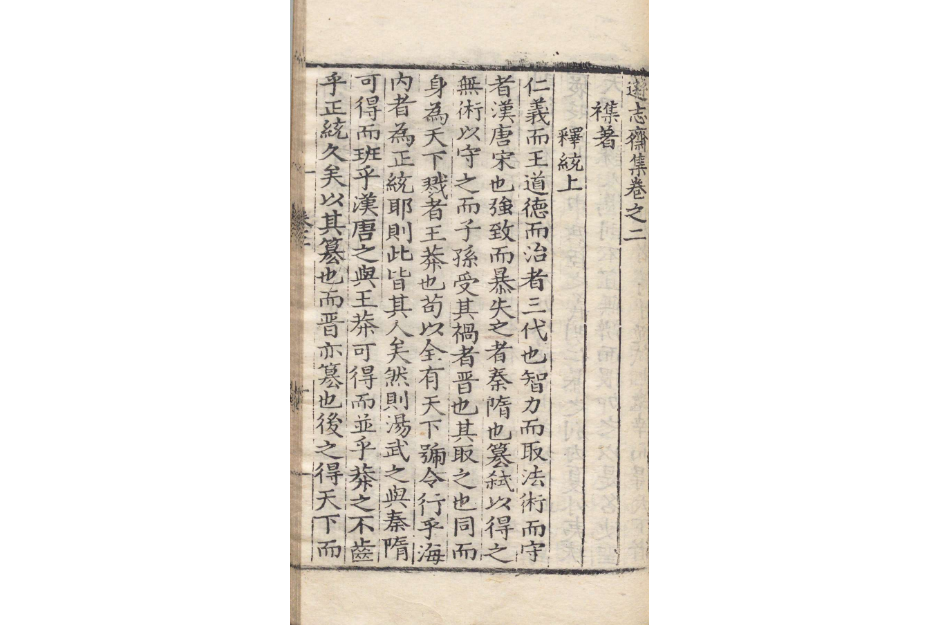 遜志齋集卷之二
襍著
釋統上
仁義而王道德而治者三代也智力而取法術而守
者漢唐宋也強致而暴失之者秦隋也簒弒以得之
無術以守之而子孫受其禍者晋也其取之也同而
身為天下戮者王莽也苟以全有天下號令行乎海
內者為正統耶則此皆其人矣然則湯武之與秦隋
可得而班乎漢唐之與王莽可得而並乎莽之不齒
乎正統久矣以其簒也而晋亦簒也後之得天下而